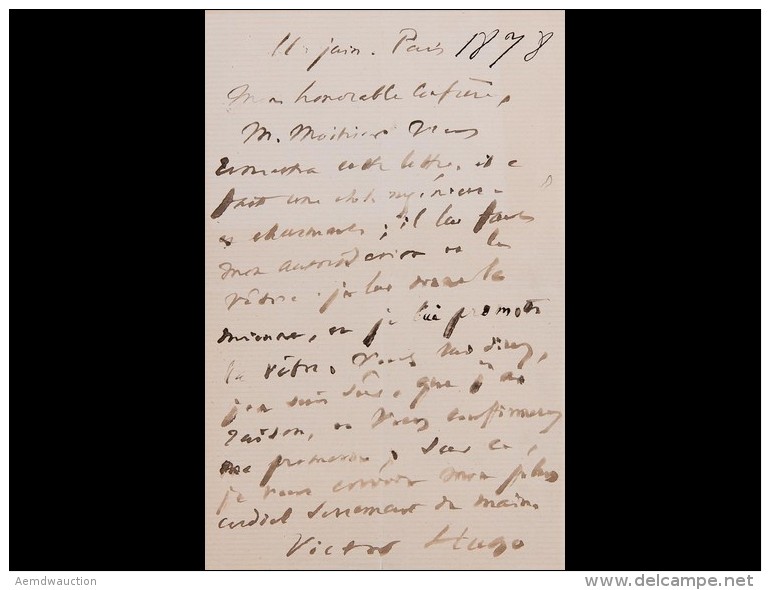 11 juin. Paris 1878
Mon honorable confrère,
M. vous
cette lettre. il a
fait une
et charmante ; il lui faut
mon autorisation et la
vôtre. je lui donne la
mienne, et je lui promets
la vôtre. Vous me direz,
j'en suis sûr, que j'ai
raison, et vous confirmerez
ma promesse ; sur ce,
je vous envoie mon plus
cordial serrement de main.
Victor Hugo
Aemdwauction
www.delcampe.net